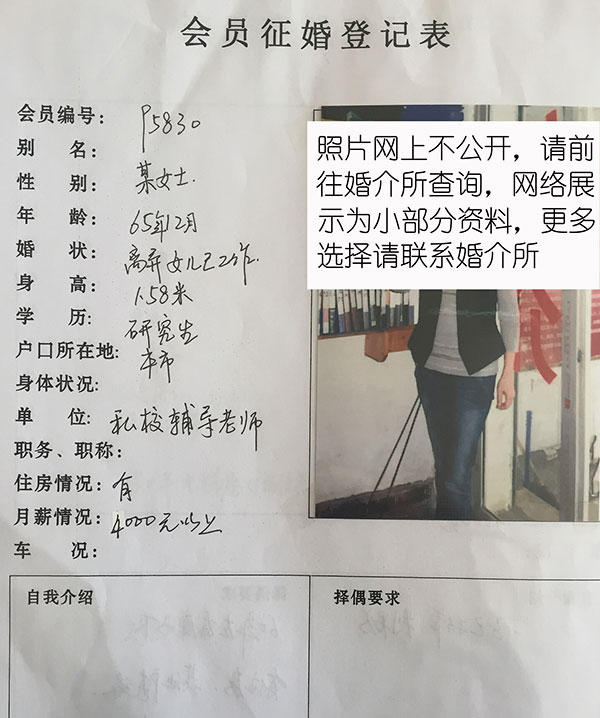 会员征婚登记表
会员编号: P5830
别 名:
性 别: 某女士.
年 龄: 65年12月
婚 状: 离异女儿已工作.
身 高: 1.58米
学 历: 研究生
户口所在地: 本市
身体状况:
单 位: 私校辅导老师
职务、职称:
住房情况: 有
月薪情况: 4000元以上
车 况:
照片网上不公开，请前
往婚介所查询，网络展
示为小部分资料，更多
选择请联系婚介所
自我介绍
择偶要求